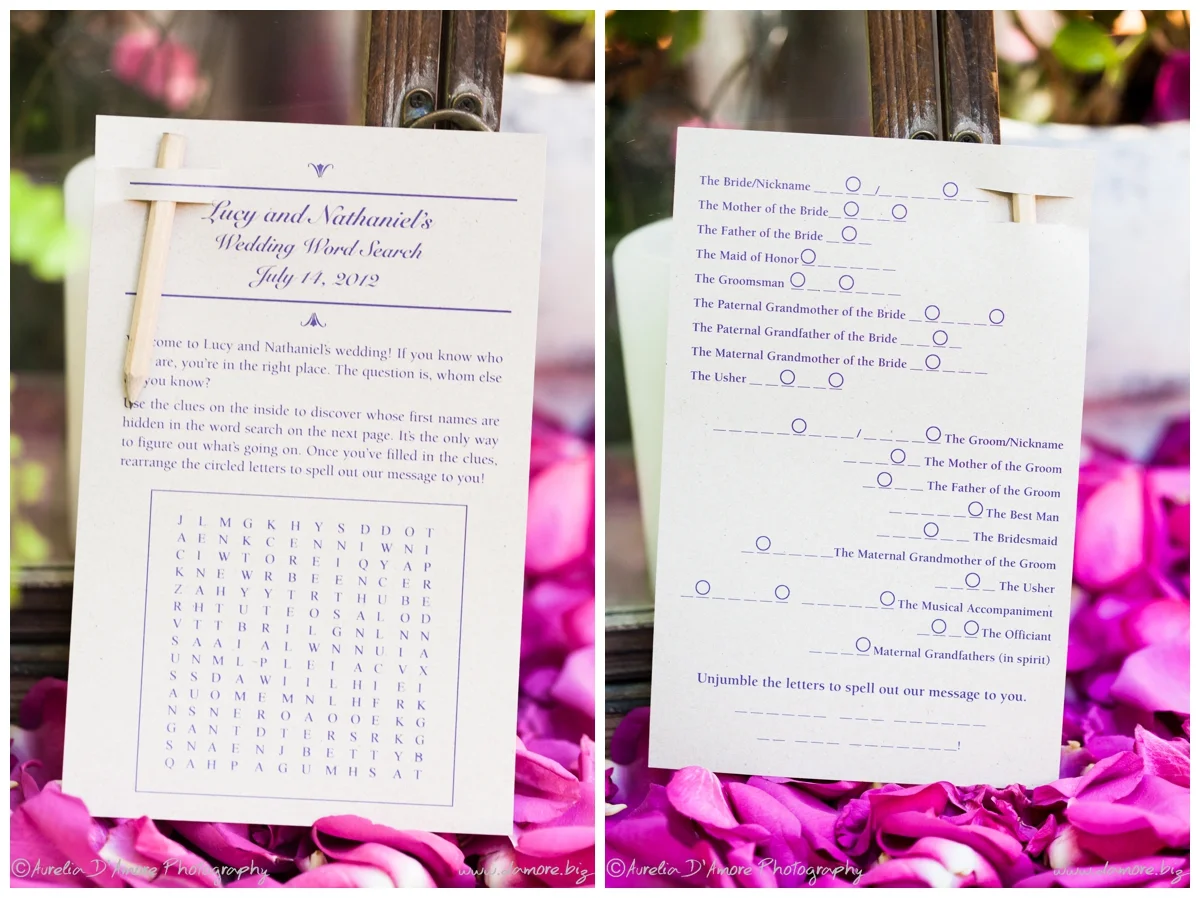 Lucy and Nathaniel's
Wedding Word Search
July 14, 2012
come to Lucy and Nathaniel's wedding! If you know who
are, you're in the right place. The question is, whom else
you know?
Use the clues on the inside to discover whose first names are
hidden in the word search on the next page. It's the only way
to figure out what's going on. Once you've filled in the clues,
rearrange the circled letters to spell out our message to you!
J L M G K H Y S D D O T
A E N K C E N N I W N I
C I W T O R E I Q Y A P
K N E W R B E E N C E R
Z A H Y Y T R T H U B E
R H T U T E O S A L O D
V T T B R I L G N L N N
S A A I A L W N N U I A
U N M L P L E I A C V X
S S D A W I I L H I E I
A U O M E M N L H F R K
N S N E R O A O O E K G
G A N T D T E R S R K G
S N A E N J B E T T Y B
Q A H P A G U M H S A T
©Aurelia D'Amore Photography
www.damore.biz
The Bride/Nickname __ O _ / _ _ _ _ O _ _
The Mother of the Bride _ O _ _ O
The Father of the Bride _ O _
The Maid of Honor O _ _ _ _ _
The Groomsman O _ _ O _ _ _
The Paternal Grandmother of the Bride _ O _ _ _ O
The Paternal Grandfather of the Bride _ _ O _
The Maternal Grandmother of the Bride _ O _ _
The Usher _ _ O _ _ O
_ _ _ _ _ O _ _ _ / _ _ _ _ O The Groom/Nickname
_ _ _ O _ The Mother of the Groom
_ O _ _ The Father of the Groom
_ _ _ _ _ O The Best Man
_ _ O _ _ The Bridesmaid
_ O _ _ _ _ The Maternal Grandmother of the Groom
_ _ O _ The Usher
_ O _ _ _ _ O _ _ _ _ _ O The Musical Accompaniment
_ O _ O The Officiant
_ _ _ O Maternal Grandfathers (in spirit)
Unjumble the letters to spell out our message to you.
_ _ _ _ _ _ _ _ _ _ _ _ _ _ _ _
_ _ _ _ _ _ _ _ _ _ _ _ _ _!
©Aurelia D'Amore Photography
www.damore.biz